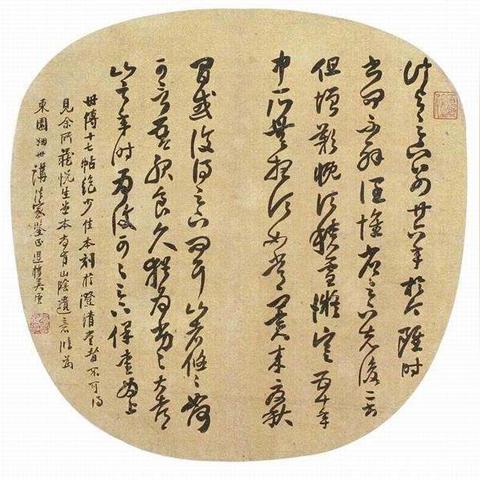 計與足下別廿六年於今雖時
書問不解闊懷省足下先後二書
但增歎慨頃積雪凝寒五十年
中所無想頃如常冀來夏秋
間或復得足下問耳比者悠悠如何
可言吾服食久猶為劣劣大都
比之年時為復可可足下保愛為上
世傳十七帖絕少佳本刻於澄清堂者不可得
見余所藏悅生堂本大有山陰遺意臨為
東園姻世講法家鑒正退樓吳雲